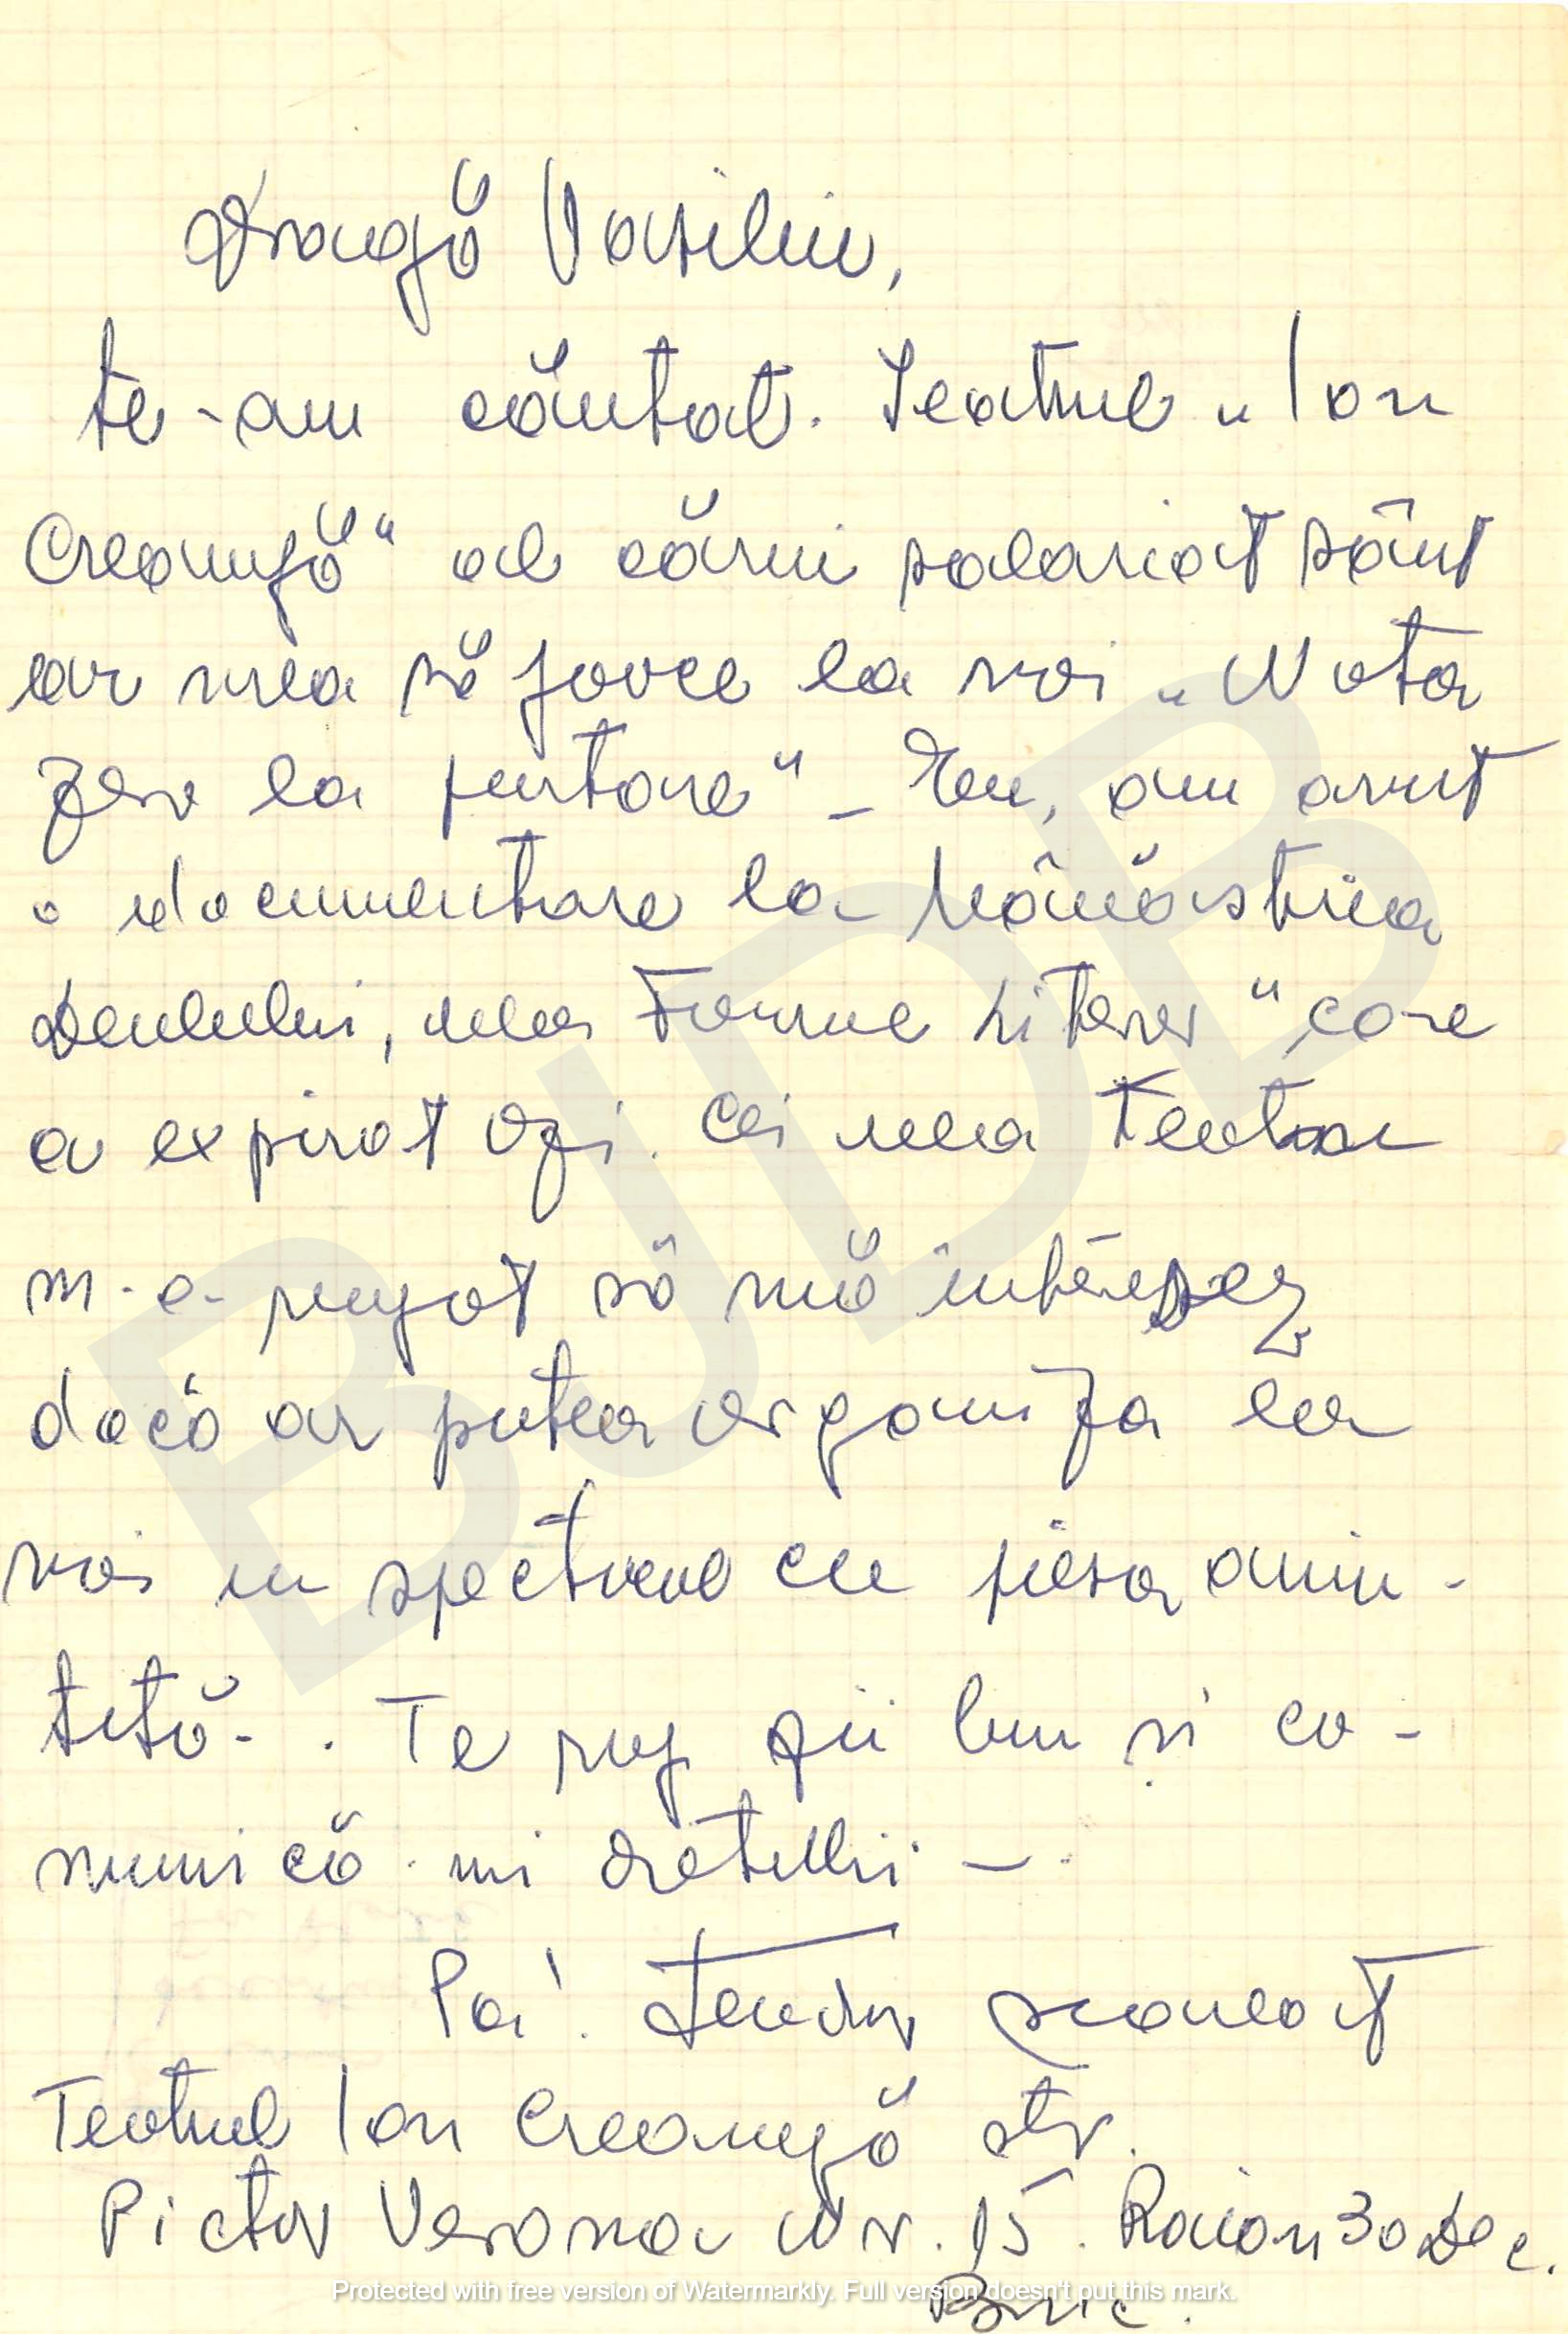 Dragă Vasiliu,
te-am căutat. Teatrul „Ion
Creangă“ al cărui salariat sânt
ar vrea să joace la voi „Nota
zero la purtare“ – Eu, am avut
o documentare la Mănăstirea
Dealului, Fondul Literar“, care
a expirat azi. Cei dela Teatru
m-a rugat să mă interesez
dacă ar putea organiza la
voi un spectacol cu piesa amin-
tită. Te rog fii bun și co-
munică-mi detalii –.
Pa!
Teatrul Ion Creangă str.
Pictor Verona Nr. 15. Raion 30 Dec.
Buc.
BJDB
Protected with free version of Watermarkly. Full version doesn't put this mark.